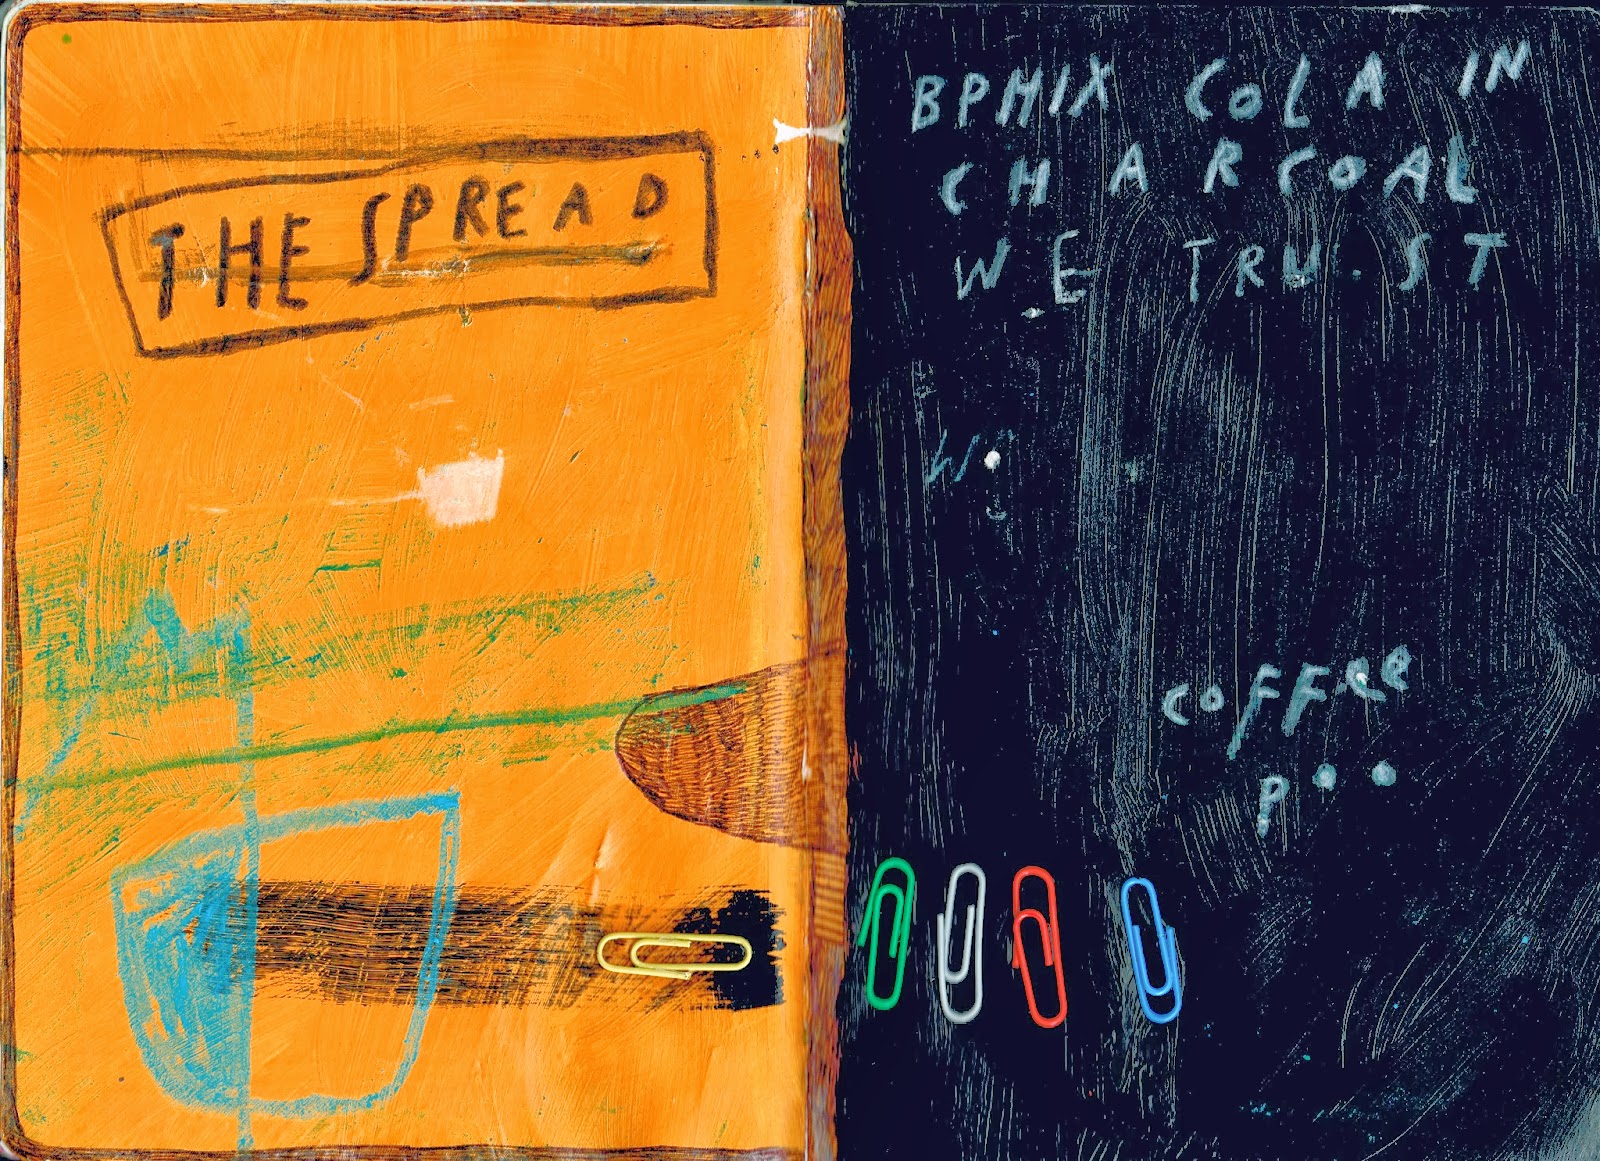 THE SPREAD
BPMIX COLA IN
CHARCOAL
WE TRUST
COFFee
P